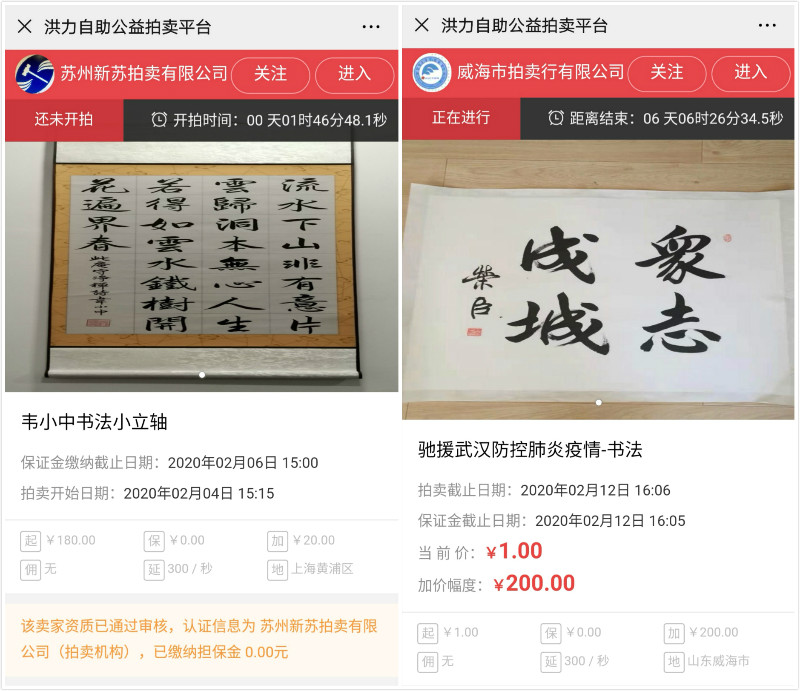 洪力自助公益拍卖平台
苏州新苏拍卖有限公司 关注 进入
还未开拍 开拍时间：00 天01时46分48.1秒
流水下山非有意片
雲歸洞本無心人生
若得如雲水鐵樹開
花遍界春
韦小中书法小立轴
保证金缴纳截止日期：2020年02月06日 15:00
拍卖开始日期：2020年02月04日 15:15
起 ￥180.00 保 ￥0.00 加 ￥20.00
佣 无 延 300 / 秒 地 上海黄浦区
该卖家资质已通过审核，认证信息为 苏州新苏拍卖有限
公司（拍卖机构），已缴纳担保金 0.00元
洪力自助公益拍卖平台
威海市拍卖行有限公司 关注 进入
正在进行 距离结束：06 天06时26分34.5秒
衆志
成城
驰援武汉防控肺炎疫情-书法
拍卖截止日期：2020年02月12日 16:06
保证金截止日期：2020年02月12日 16:05
当 前 价：￥1.00
加价幅度：￥200.00
起 ￥1.00 保 ￥0.00 加 ￥200.00
佣 无 延 300 / 秒 地 山东威海市